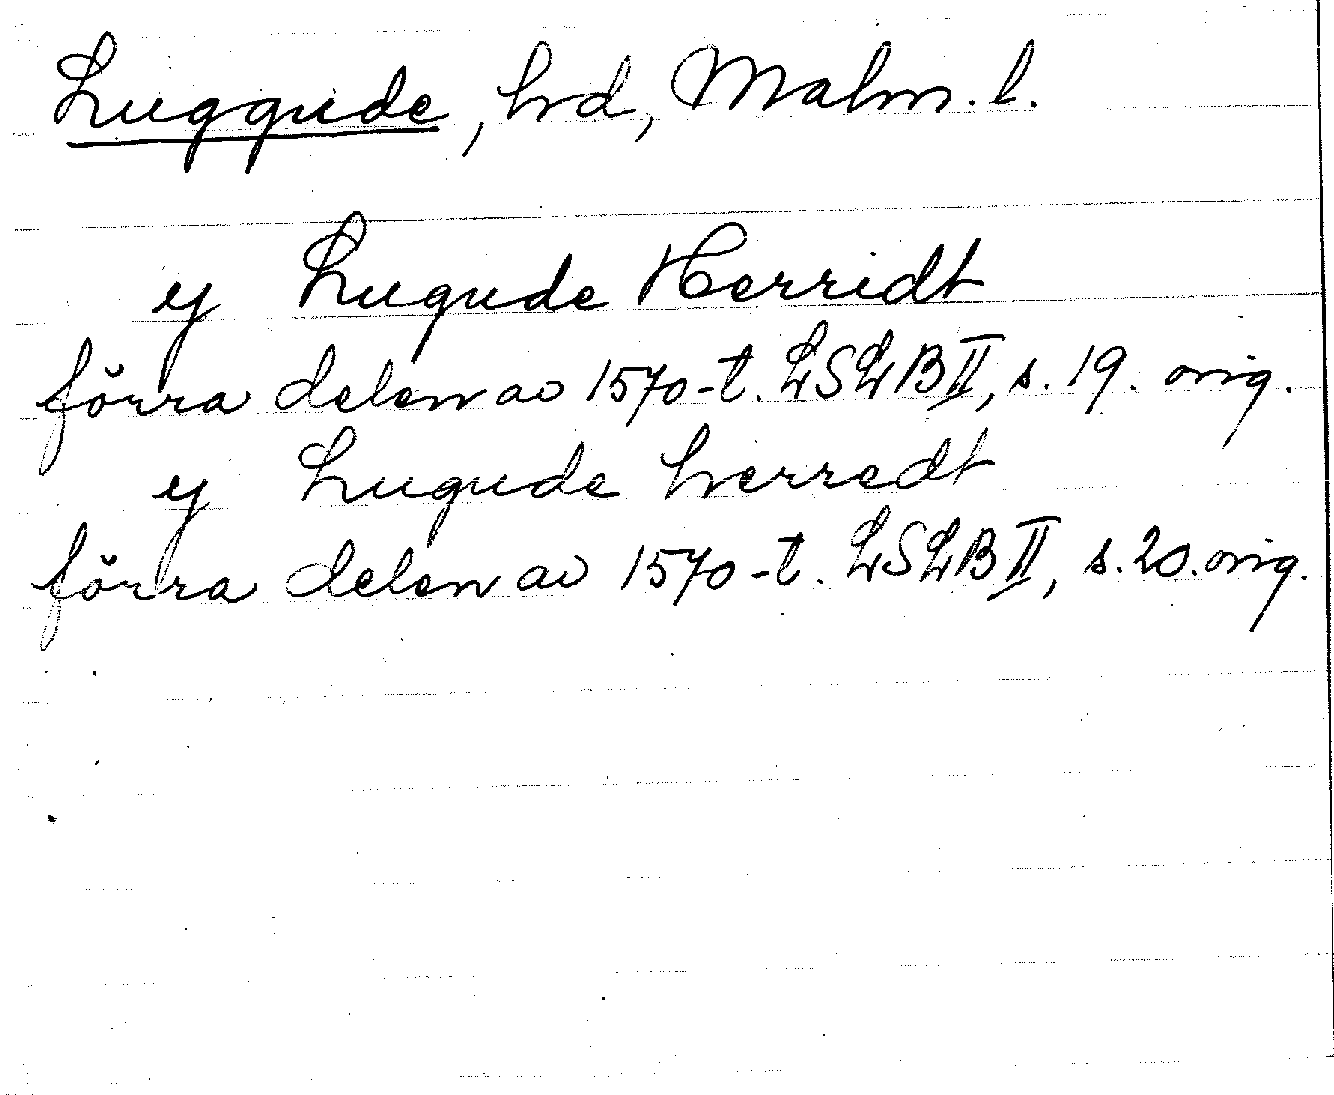 Luggude, hrd, Malm. l.
y Lugude Herridt
förra delen av 1570-t. LSLB II, s. 19. orig.
y Lugude herredt
förra delen av 1570-t. LSLB II, s. 20. orig.